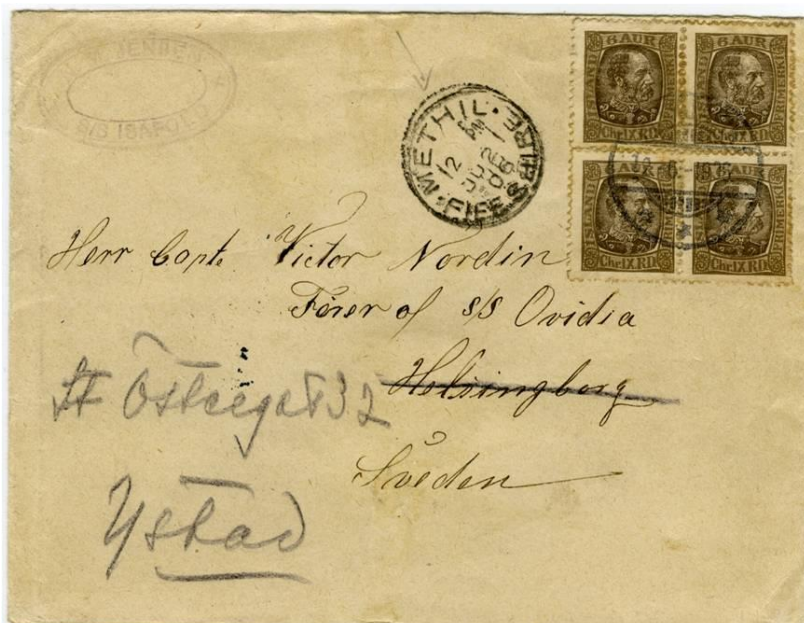 JENSEN
S/S ISAFO
METHIL
12 PM
JU 2
06
FIFESHIRE
6 AUR
6 AUR
Chr.IX.RD
6 AUR
6 AUR
Chr.IX.RD
Chr.IX.RD
Herr Capt. Victor Nordin
Förer af S/S Ovidia
Helsingborg
Sveden
St Östregat 32
Ystad